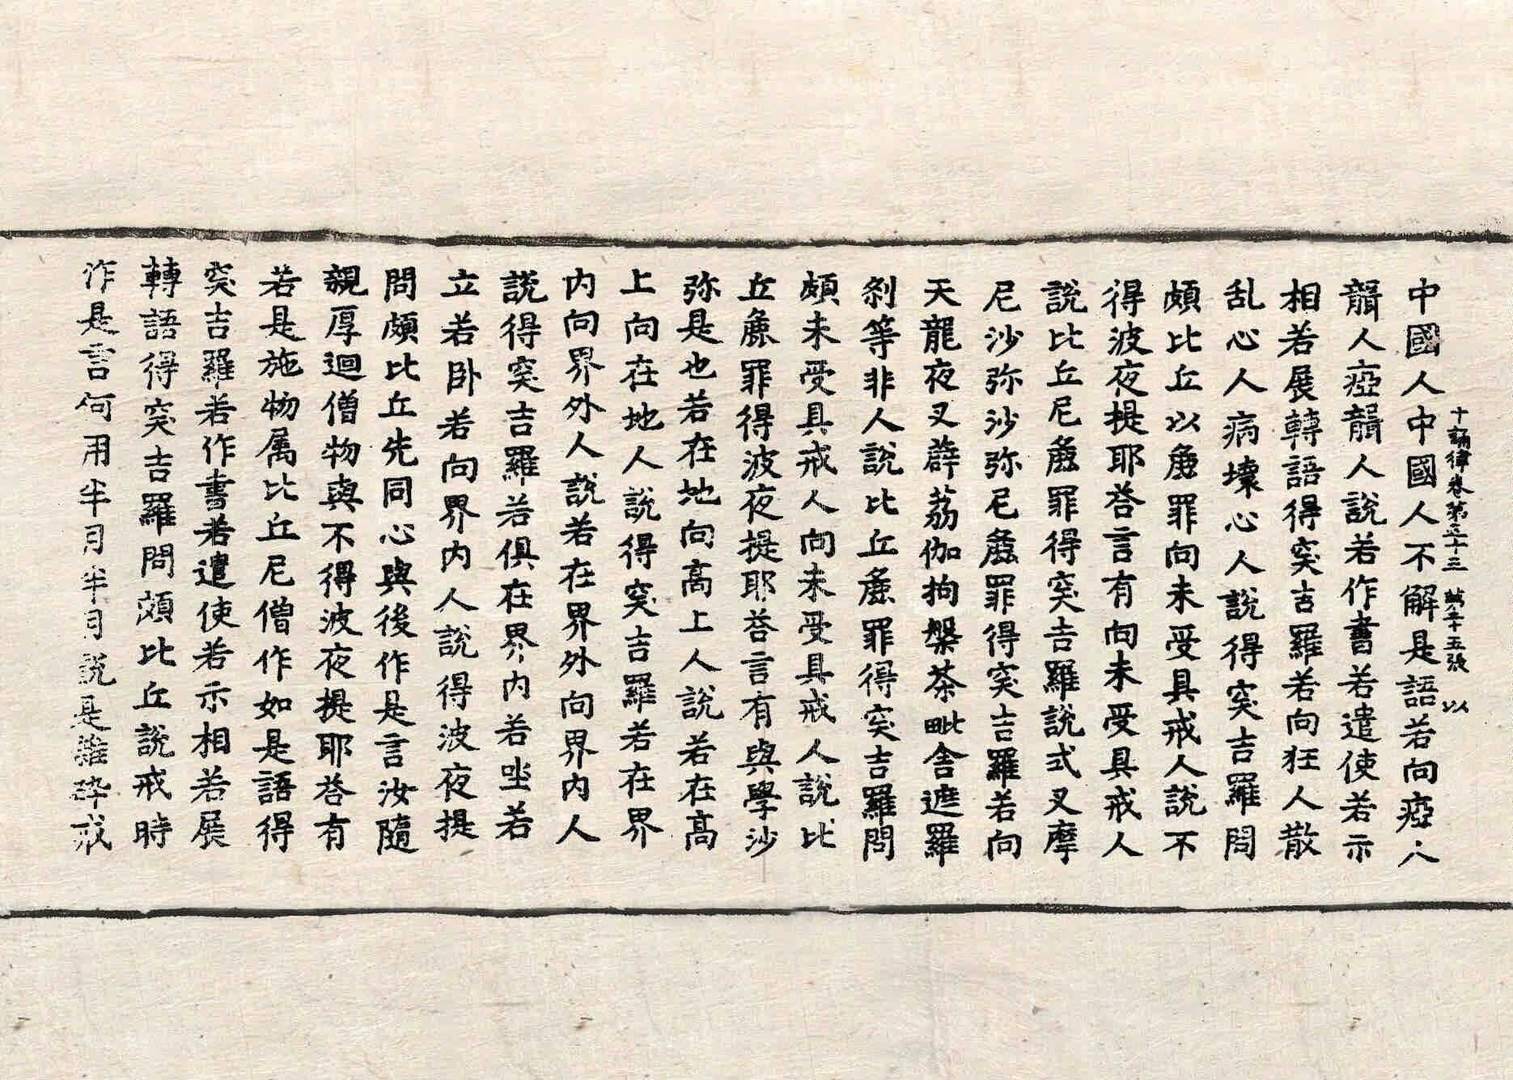 十誦律卷第五十三 第十五張 以
中國人中國人不解是語若向瘂人
聾人瘂聾人說若作書若遣使若示
相若展轉語得突吉羅若向狂人散
乱心人病壞心人說得突吉羅問
頗比丘以麁罪向未受具戒人說不
得波夜提耶荅言有向未受具戒人
說比丘尼麁罪得突吉羅說式叉摩
尼沙弥沙弥尼麁罪得突吉羅若向
天龍夜叉薜荔伽拘槃茶毗舍遮羅
剎等非人說比丘麁罪得突吉羅問
頗未受具戒人向未受具戒人說比
丘麁罪得波夜提耶荅言有與學沙
弥是也若在地向高上人說若在高
上向在地人說得突吉羅若在界
内向界外人說若在界外向界内人
說得突吉羅若俱在界内若坐若
立若卧若向界内人說得波夜提
問頗比丘先同心與後作是言汝隨
親厚迴僧物與不得波夜提耶荅有
若是施物属比丘尼僧作如是語得
突吉羅若作書若遣使若示相若展
轉語得突吉羅問頗比丘說戒時
作是言何用半月半月說是雜碎戒